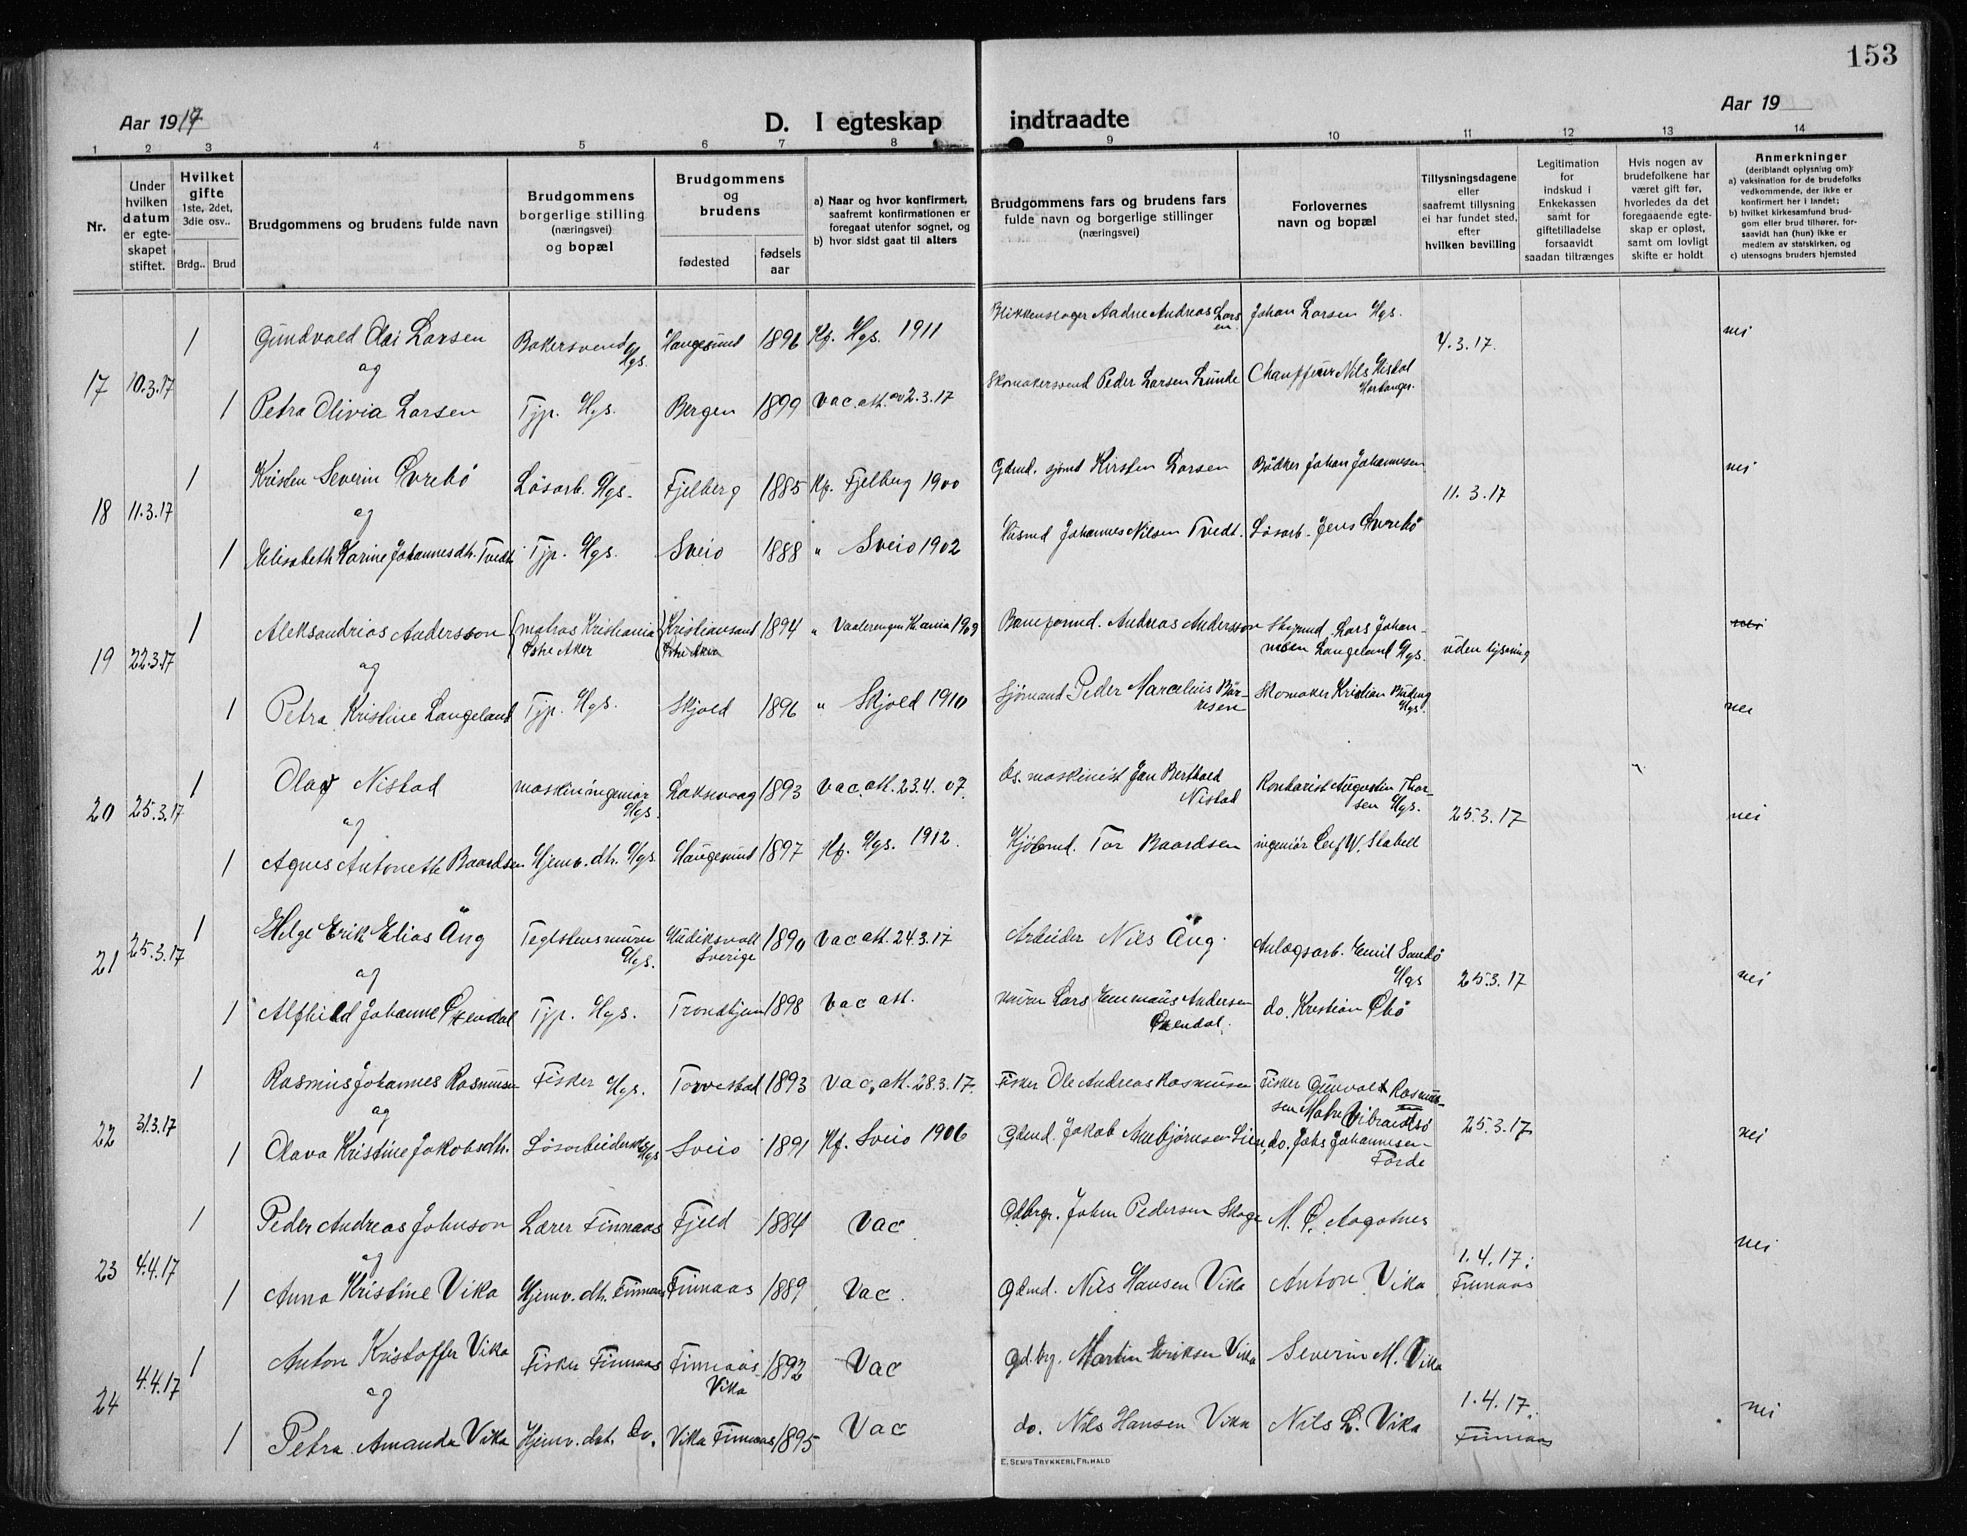 153
Aar 1917
D. I egteskap indtraadte
Aar 19
1 2 3 4 5 6 7 8 9 10 11 12 13 14
Nr.
Under hvilken datum er egteskapet stiftet.
Hvilket gifte
1ste, 2det, 3die osv..
Brdg.. Brud
Brudgommens og brudens fulde navn
Brudgommens borgerlige stilling (næringsvei) og bopæl
Brudgommens og brudens
fødested
fødsels aar
a) Naar og hvor konfirmert, saafremt konfirmationen er foregaat utenfor sognet, og
b) hvor sidst gaat til alters
Brudgommens fars og brudens fars fulde navn og borgerlige stillinger (næringsvei)
Forlovernes navn og bopæl
Tillysningsdagene eller saafremt tillysning ei har fundet sted, efter hvilken bevilling
Legitimation for indskud i Enkekassen samt for giftetilladelse forsaavidt saadan tiltrænges
Hvis nogen av brudefolkene har været gift før, hvorledes da det foregaaende egteskap er opløst, samt om lovligt skifte er holdt
Anmerkninger
(deriblandt oplysning om):
a) vaksination for de brudefolks vedkommende, der ikke er konfirmert her i landet;
b) hvilket kirkesamfund brudgom eller brud tilhører, forsaavidt han (hun) ikke er medlem av statskirken, og
c) utensogns bruders hjemsted
17 10.3.17 1 Gundvald Olai Larsen Bakersvend Hgs. Haugesund 1896 Kf. Hgs. 1911 Blikkenslager Aadne Andreas Larsen Johan Larsen Hgs. 4.3.17. nei
og
1 Petra Olivia Larsen Tjp. Hgs. Bergen 1899 Vac. att. av 2.3.17 Skomakersvend Peder Larsen Lunde Chauffeur Nils Kistol
18 11.3.17 1 Kristen Severin Øvrebö Løsarb. Hgs. Fjelberg 1885 Kf. Fjelberg 1900 Gdmd. sjömd Kirsten Larsen Bödker Johan Johannesen 11.3.17 nei
og
1 Karine Johannesdh. Tvedt Tjp. Hgs. Sveio 1888 " Sveio 1902 Husmd Johannes Nilsen Tvedt. Løsarb. Jens Øvrebö
19 22.3.17 1 Aleksandrias Andersson matros Kristiania Østre Aker Kristiansand 1894 " Vaalerengen Kr.ania 1909 Baneformd. Andreas Andersson Lars Johannesen Langeland Hgs. uden lysning nei
og
1 Petra Kristine Langeland Tjp. Hgs. Skjold 1896 " Skjold 1910 Sjømand Peder Marcelius Börresen Skomaker Kristian Hgs. nei
20 25.3.17 1 Olav Nistad maskiningeniør Hgs. Laksevaag 1893 Vac. att. 23.4.07. maskinist Jan Berthold Nistad Kontorist Augustin Thorsen Hgs. 25.3.17 nei
og
1 Agnes Antonette Baardsen Hjemv. dtr. Hgs. Haugesund 1897 Kf. Hgs. 1912. Kjöbmd. Tor Baardsen ingeniør Leif W. Stabell
21 25.3.17 1 Helge Erik Elias Äng Teglstensmurer Hgs. Hudiksvall Sverige 1890 Vac att. 24.3.17 Arbeider Nils Äng. Anlægsarb. Emil Sandö Hgs 25.3.17 nei
og
1 Alfhild Johanne Øxendal Tjp. Hgs. Trondhjem 1898 Vac att. murer Lars Emmaus Andersen Øxendal. do. Kristian Øbö
22 31.3.17 1 Rasmus Johannes Rasmussen Fisker Hgs. Torvestad 1893 Vac. att. 28.3.17. Fisker Ole Andreas Rasmussen Fisker Gunvald Rasmussen Vibrandsö 25.3.17 nei
og
1 Olava Kristine Jakobsdtr. Løsarbeiderske Hgs Sveio 1891 Kf. Sveio 1906 Gdmd. Jakob Aubjørnsen Lien do. Johs Johannesen Förde
23 4.4.17 1 Peder Andreas Johnson Lærer Finnaas Fjeld 1884 Vac Gdbrgr. John Pedersen Skoge M. O. Aagotnes 1.4.17. Finnaas nei
og
1 Anna Kristine Vika Hjemv. dtr. Finnaas Finnaas 1889 Vac. Gdmd. Nils Hansen Vika Anton Vika
24 4.4.17 1 Anton Kristoffer Vika Fisker Finnaas Finnaas Vika 1892 Vac gd.br. Martin Eriksen Vika Severin M. Vika 1.4.17. Finnaas nei
og
1 Petra Amanda Vika Hjemv. dat. do. Vika Finnaas 1895 Vac do. Nils Hansen Vika Nils L. Vika
E. SEM'S TRYKKERI, FR.HALD